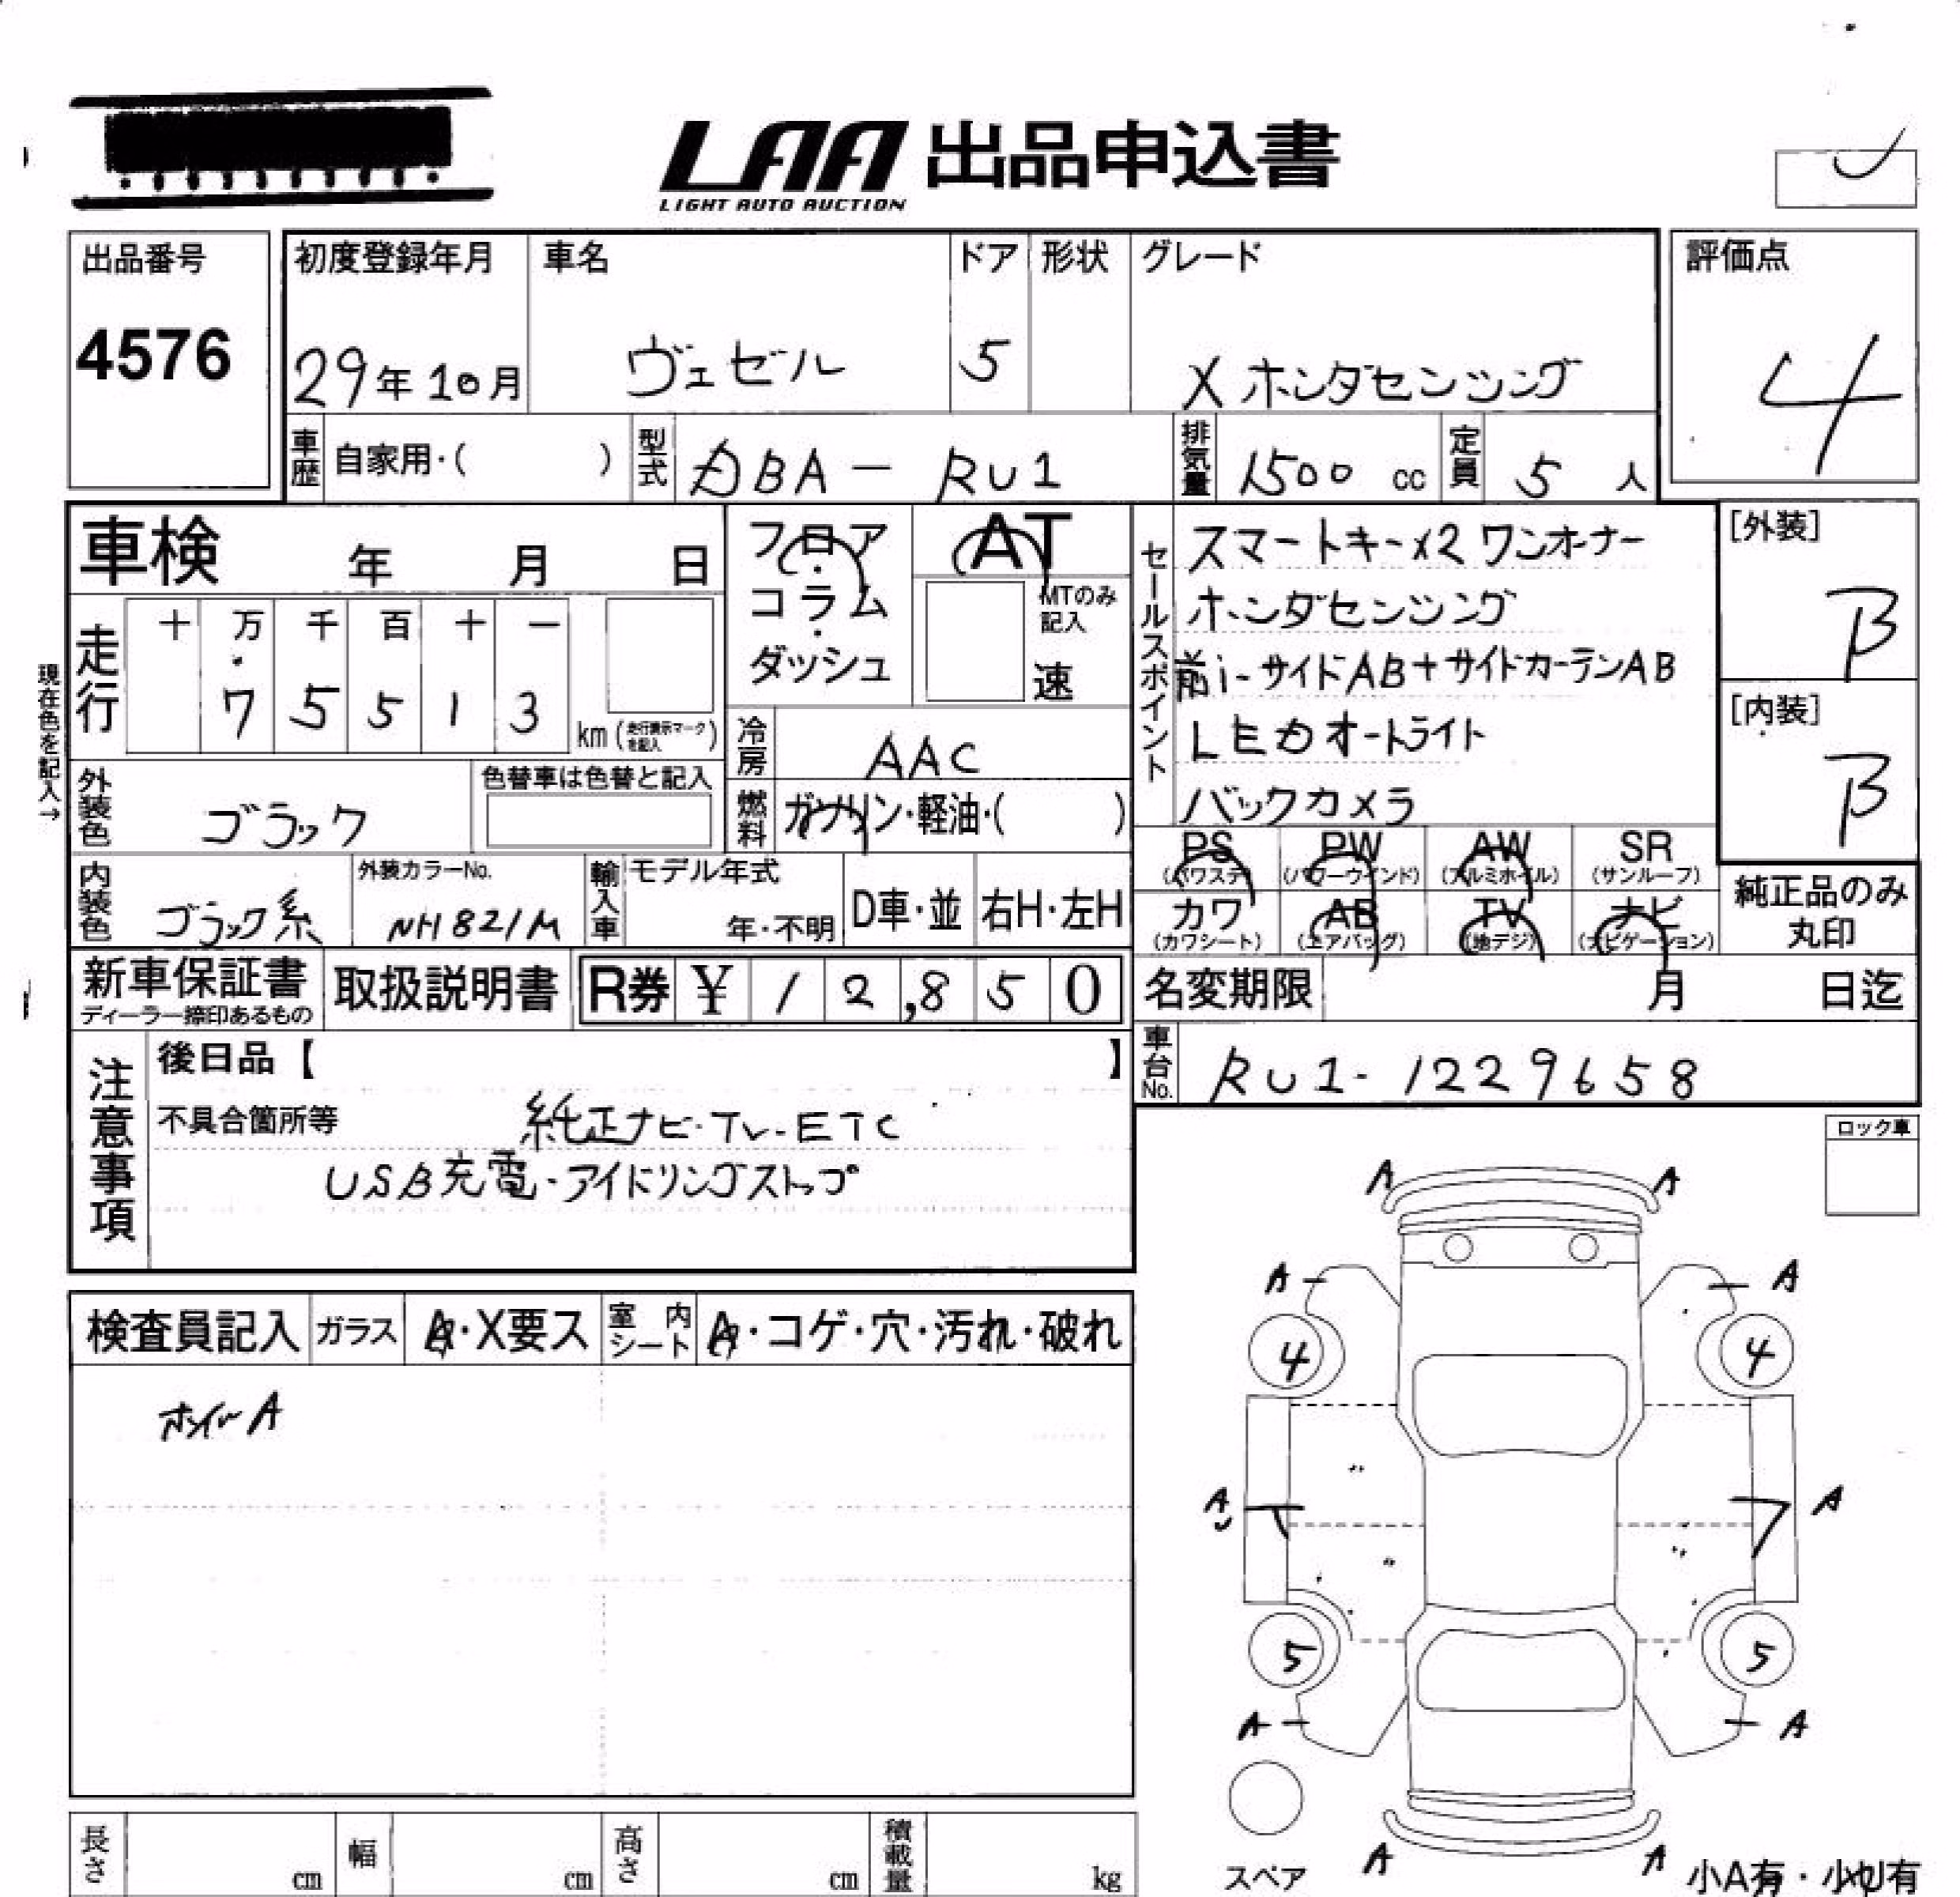 LAA 出品申込書
LIGHT AUTO AUCTION
出品番号
4576
初度登録年月 車名 ドア 形状 グレード
29年10月 ヴェゼル 5 X ホンダセンシング
評価点
4
車歴 自家用・( ) 型式 DBA - RU1 排気量 1500 cc 定員 5 人
車検 年 月 日
フロア・コラム・ダッシュ
AT
MTのみ記入
速
セールスポイント
スマートキーx2 ワンオーナー
ホンダセンシング
前i-サイドAB+サイドカーテンAB
LEDオートライト
バックカメラ
[外装]
B
[内装]
B
現在色を記入→
走行 十 万 千 百 十 一
7 5 5 1 3
km (走行表示マークを記入)
冷房 AAC
燃料 ガソリン・軽油・( )
外装色 ブラック
色替車は色替と記入
内装色 ブラック系
外装カラーNo.
NH821M
輸入車 モデル年式
年・不明
D車・並 右H・左H
PS (パワステ) PW (パワーウインド) AW (アルミホイル) SR (サンルーフ)
カワ (カワシート) AB (エアバッグ) TV (地デジ) ナビ (ナビゲーション)
純正品のみ
丸印
新車保証書
ディーラー捺印あるもの
取扱説明書 R券 ¥ 12,850
名変期限 月 日迄
車台No. RU1-1229658
注意事項
後日品【 】
不具合箇所等 純正ナビ・TV-ETC
USB充電・アイドリングストップ
ロック車
検査員記入 ガラス A・X要ス 室内シート A・コゲ・穴・汚れ・破れ
ホイールA
A A
A A
4 4
A A
5 5
A A
スペア
A A
小A有・小U有
長さ cm 幅 cm 高さ cm 積載量 kg